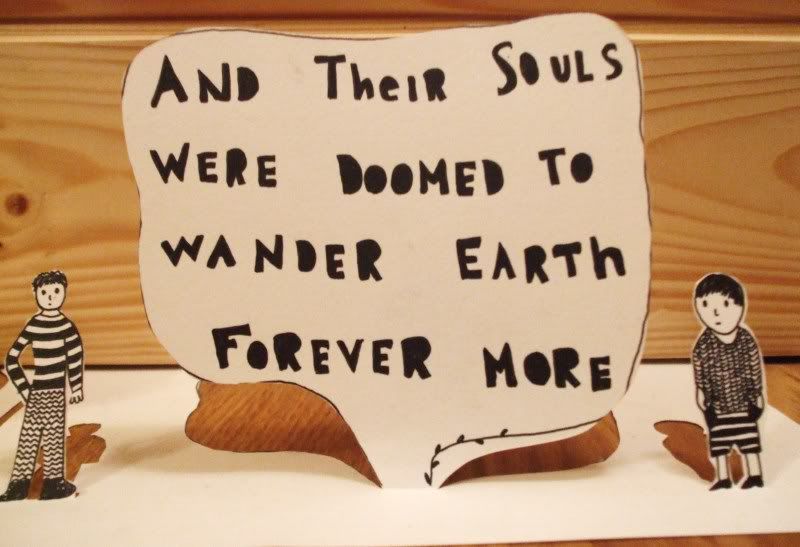 AND THeiR SOULS
WERE DOOMED TO
WANDER EARTh
FOREVER MORE